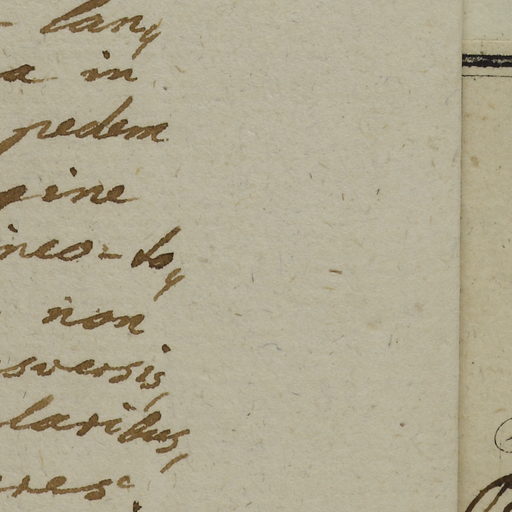 - lan
a in
pedem
gine
ineo-to
non
sversis,
laribus,
eres-